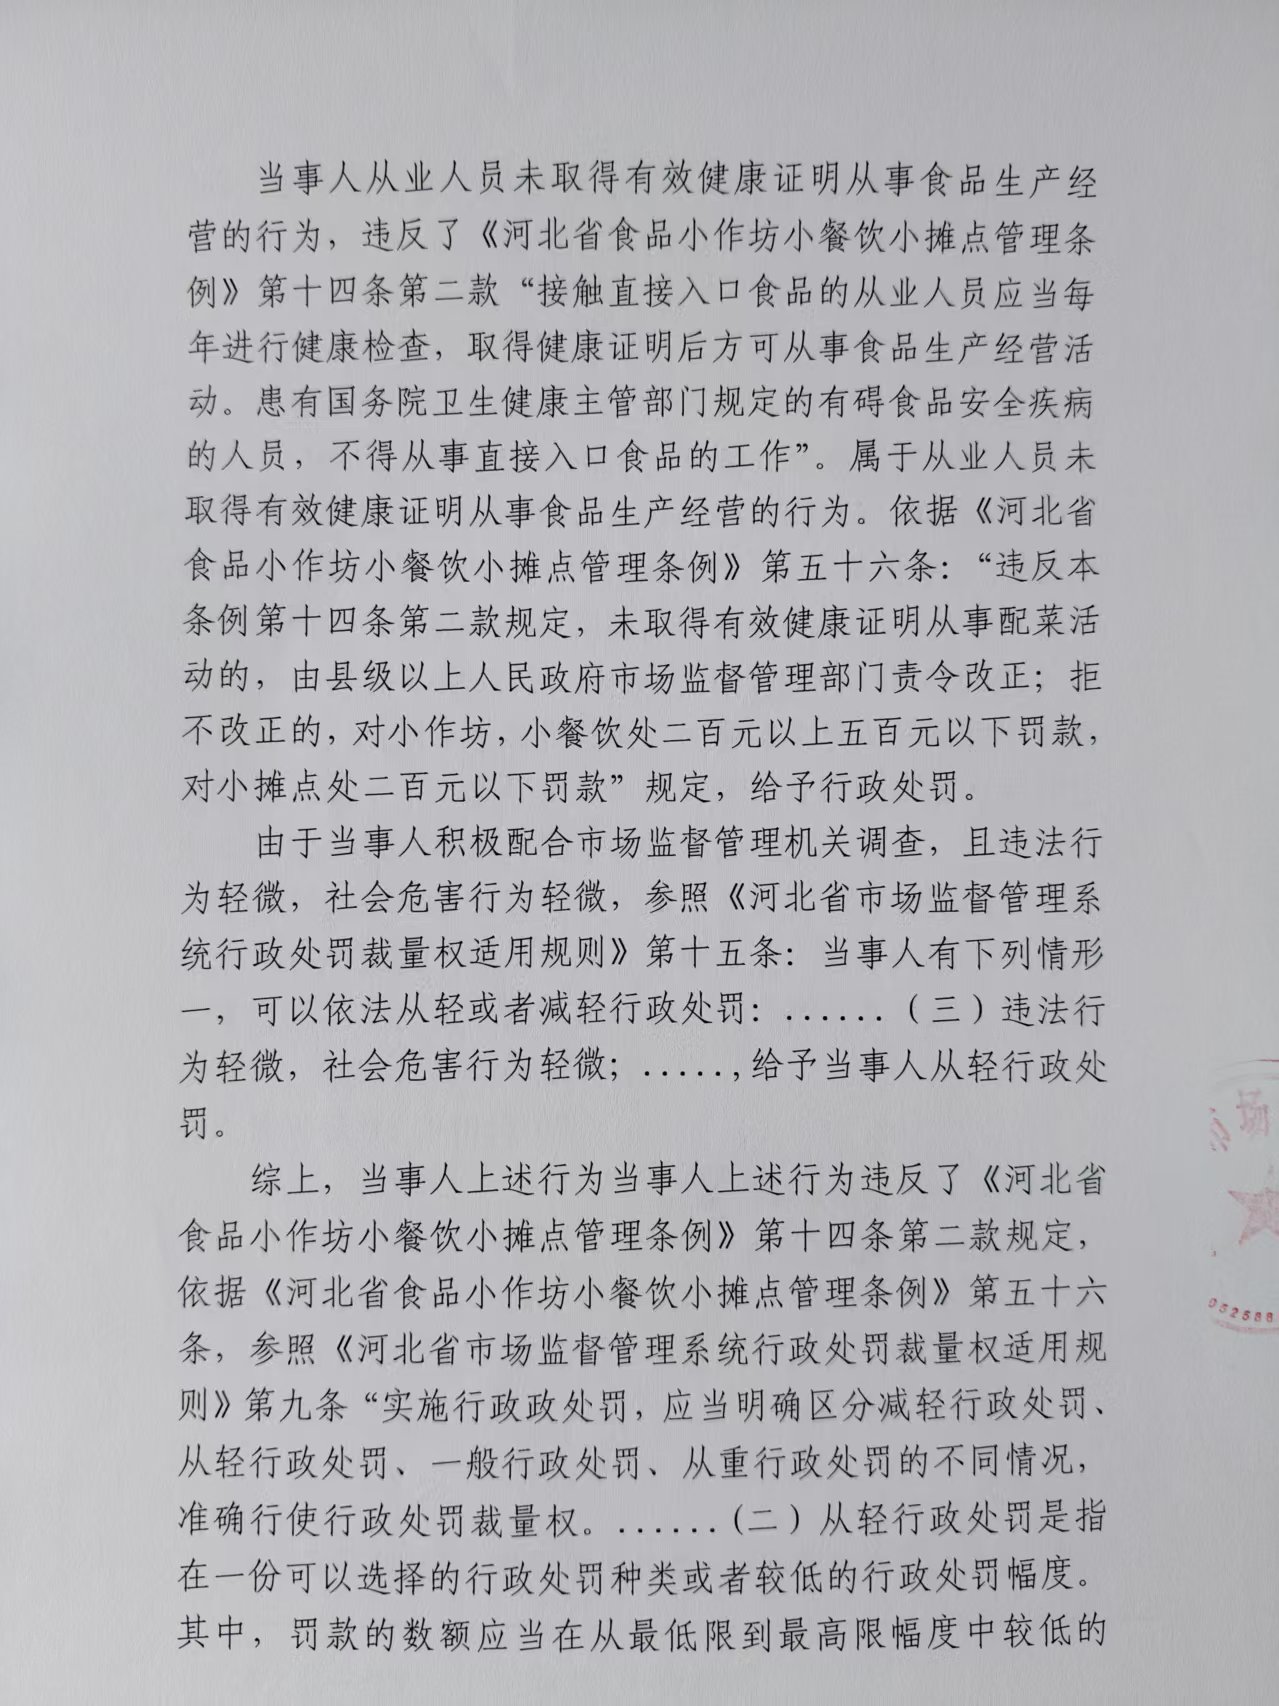 当事人从业人员未取得有效健康证明从事食品生产经
营的行为，违反了《河北省食品小作坊小餐饮小摊点管理条
例》第十四条第二款“接触直接入口食品的从业人员应当每
年进行健康检查，取得健康证明后方可从事食品生产经营活
动。患有国务院卫生健康主管部门规定的有碍食品安全疾病
的人员，不得从事直接入口食品的工作”。属于从业人员未
取得有效健康证明从事食品生产经营的行为。依据《河北省
食品小作坊小餐饮小摊点管理条例》第五十六条：“违反本
条例第十四条第二款规定，未取得有效健康证明从事配菜活
动的，由县级以上人民政府市场监督管理部门责令改正；拒
不改正的，对小作坊，小餐饮处二百元以上五百元以下罚款，
对小摊点处二百元以下罚款”规定，给予行政处罚。
由于当事人积极配合市场监督管理机关调查，且违法行
为轻微，社会危害行为轻微，参照《河北省市场监督管理系
统行政处罚裁量权适用规则》第十五条：当事人有下列情形
一，可以依法从轻或者减轻行政处罚：......（三）违法行
为轻微，社会危害行为轻微；.....,给予当事人从轻行政处
罚。
综上，当事人上述行为当事人上述行为违反了《河北省
食品小作坊小餐饮小摊点管理条例》第十四条第二款规定，
依据《河北省食品小作坊小餐饮小摊点管理条例》第五十六
条，参照《河北省市场监督管理系统行政处罚裁量权适用规
则》第九条“实施行政政处罚，应当明确区分减轻行政处罚、
从轻行政处罚、一般行政处罚、从重行政处罚的不同情况，
准确行使行政处罚裁量权。......(二）从轻行政处罚是指
在一份可以选择的行政处罚种类或者较低的行政处罚幅度。
其中，罚款的数额应当在从最低限到最高限幅度中较低的
场
052588